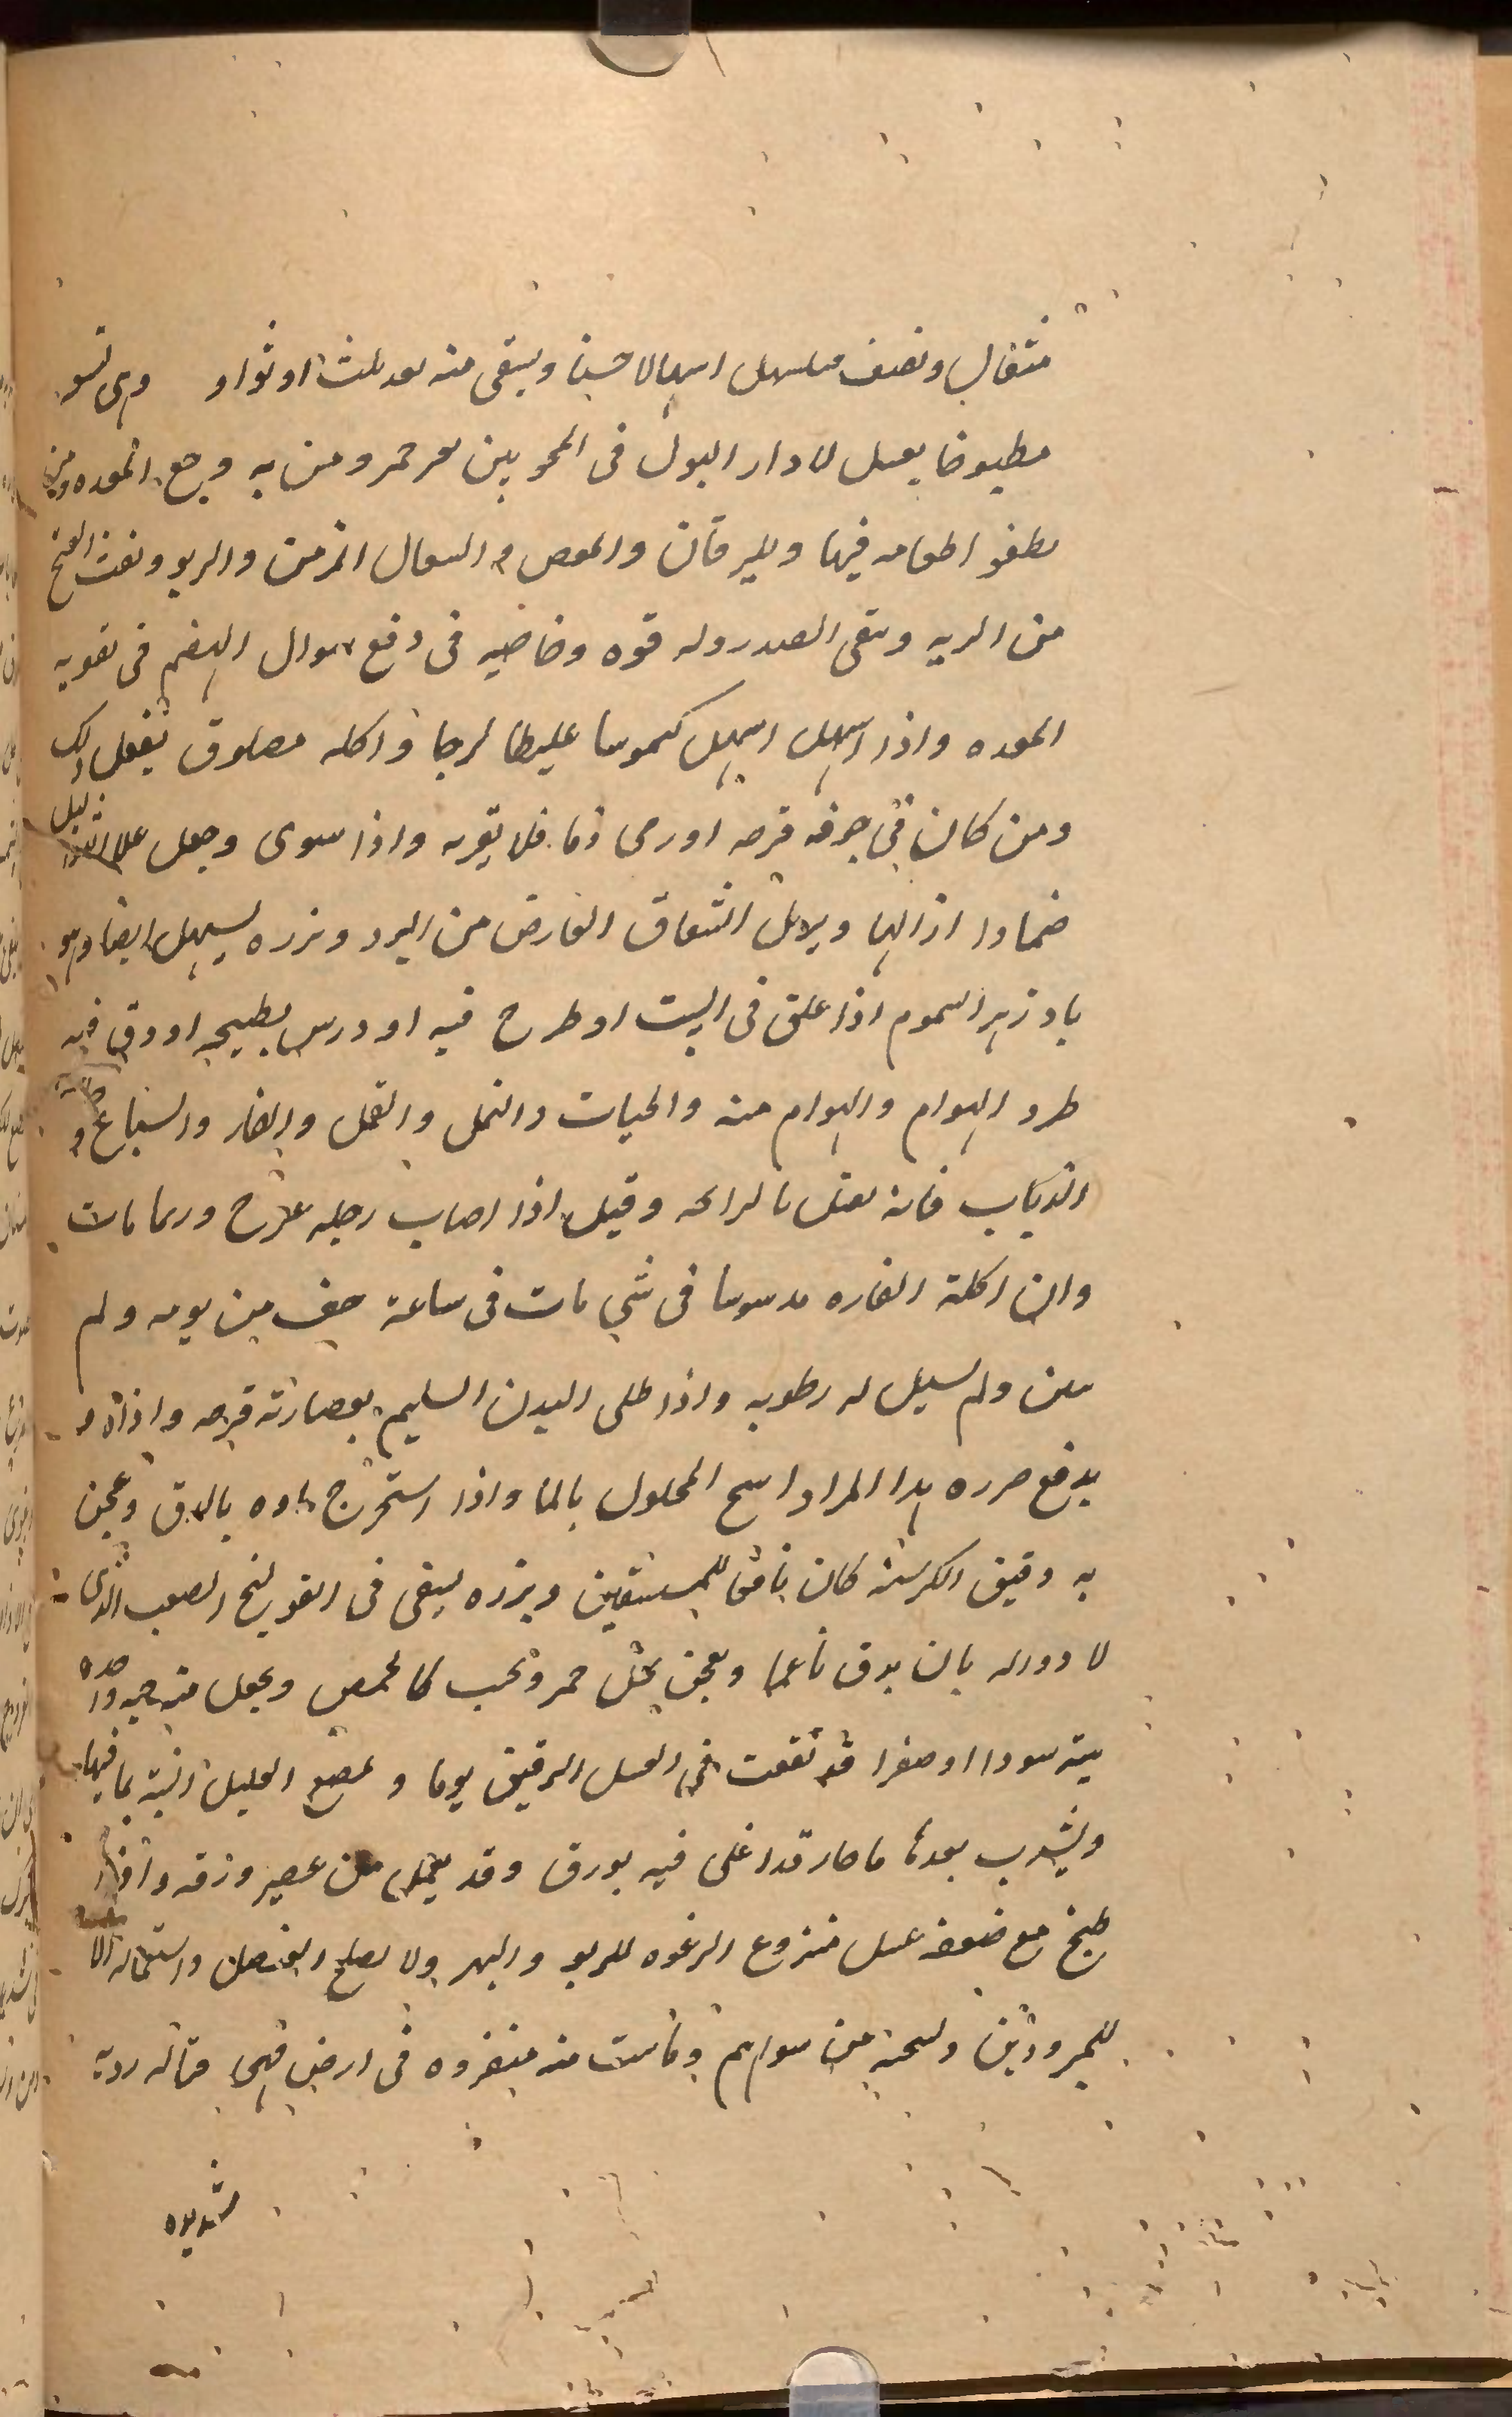 مثقال ونصف مسهل اسهالا حسنا ويبقى منه بعد ثلث او نواو وهى تسو
مطبوخا بعسل لادرار البول فى المحو بين بعر حمر ومن به وجع المعده ومن
يطفوا طعامه فيها ولليرقان والمغص والسعال المزمن والربو ونفث القيح
من الريه وينقى الصدر وله قوه وخاصيه فى دفع سوال الهضم فى تقويه
المعده واذا اسهل اسهل كيموسا غليظا لزجا واكله مصلوق يفعل ذلك
ومن كان فى جوفه قرحه او رمى دما فلا يقربه واذا سوى وجعل على الثاليل
ضمادا ازالها ويزيل الشقاق العارض من البرد وبزره يسهل ايضا وهو
بادزهر السموم اذا علق فى البيت او طرح فيه او درس بطبيخه او دق فيه
طرد الهوام والهوام منه والحيات والنمل والقمل والفار والسباع و
الذياب فانه يقتل بالرائحه وقيل اذا اصاب رجله عرج وربما مات
وان اكلة الفاره مدسوسا فى شي مات فى ساعة جف من يومه ولم
ينتن ولم يسيل له رطوبه واذا طلى البدن السليم بعصارته قرحه واذاه و
يدفع ضرره هذا المرداسنج المحلول بالما واذا استخرج ماوه بالدق وعجن
به دقيق الكرسنه كان نافعا للمستسقين وبزره يسقى فى القولنج الصعب الذى
لا دوا له بان يدق ناعما ويعجن بخل خمر ويحبب كالحمص ويجعل منه حبه واحده
تينه سودا او صفرا قد نقعت فى العسل الرقيق يوما ويمضغ العليل التينه بما فيها
ويشرب بعدها ما حار قد اغلى فيه بورق وقد يعمل من عصير ورقه واذا
طبخ مع ضعفه عسل منزوع الرغوه للربو والبهر ولا يصلح العنصل واستعماله الا
للمبرودين ولتجنبه من سواهم ونابت منه منفرده فى ارض فهى قتاله رديه
شديده